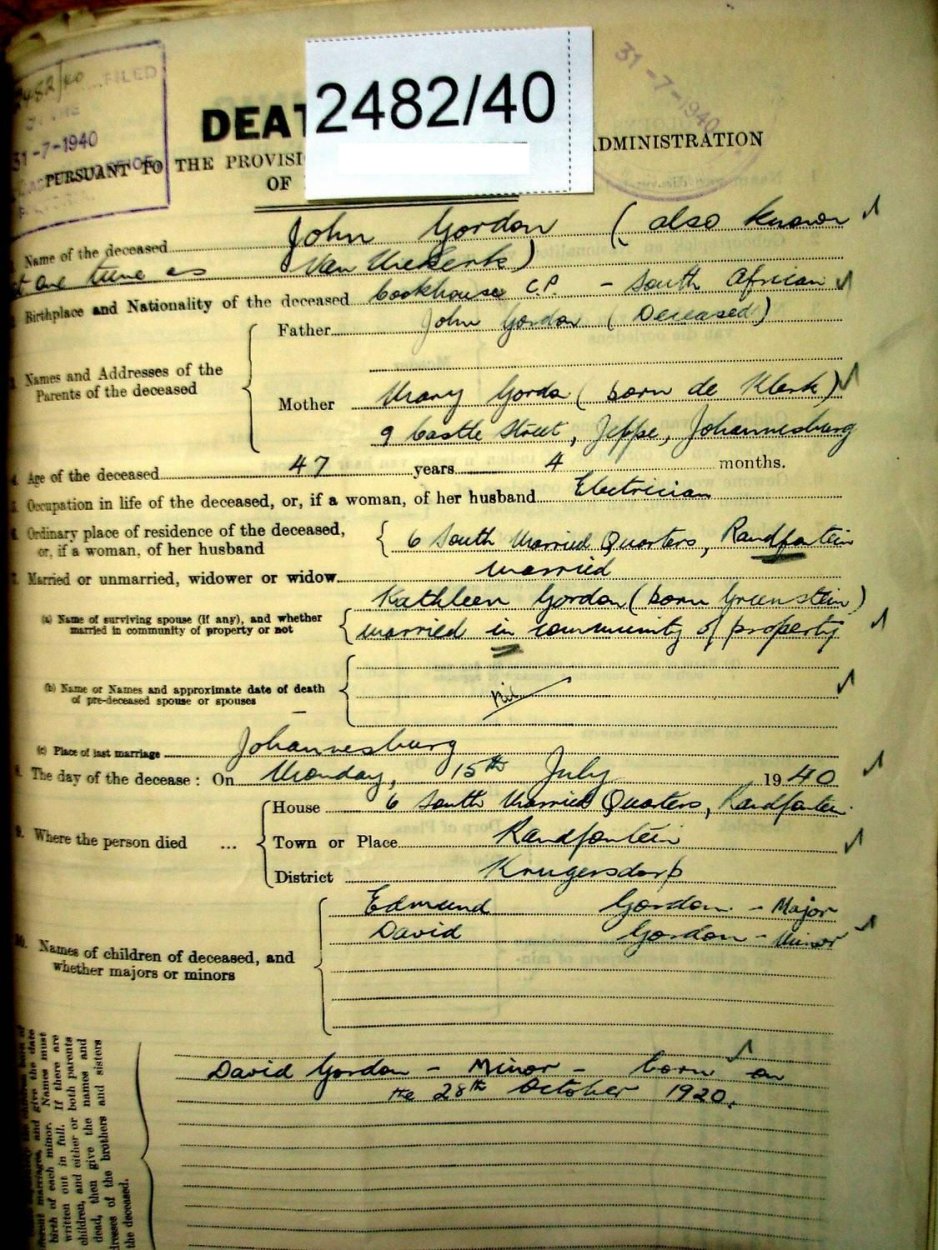 2482/40
482/40 FILED
31-7-1940
31-7-1940
DEAT
ADMINISTRATION
PURSUANT TO THE PROVISI
OF
Name of the deceased John Gordon (also known
at one time as Van Niekerk)
Birthplace and Nationality of the deceased Cookhouse C.P. - South African
3. Names and Addresses of the Parents of the deceased
Father John Gordon (Deceased)
Mother Mary Gordon (born de Klerk)
9 Castle Street, Jeppe, Johannesburg
4. Age of the deceased 47 years 4 months.
5. Occupation in life of the deceased, or, if a woman, of her husband Electrician
6. Ordinary place of residence of the deceased,
or, if a woman, of her husband
6 South Married Quarters, Randfontein
7. Married or unmarried, widower or widow married
Kathleen Gordon (born Greenstein)
(a) Name of surviving spouse (if any), and whether
married in community of property or not
married in community of property
(b) Name or Names and approximate date of death
of pre-deceased spouse or spouses
Nil
(c) Place of last marriage Johannesburg
8. The day of the decease: On Monday, 15th July 1940
9. Where the person died ...
House 6 South Married Quarters, Randfontein.
Town or Place Randfontein
District Krugersdorp
10. Names of children of deceased, and
whether majors or minors
Edmund Gordon - Major
David Gordon - Minor
David Gordon - Minor - born on
the 28th October 1920.
birth of each minor. Names must
written out in full. If there are
children, and either or both parents
dead, then give the names and
addresses of the brothers and sisters
the deceased.